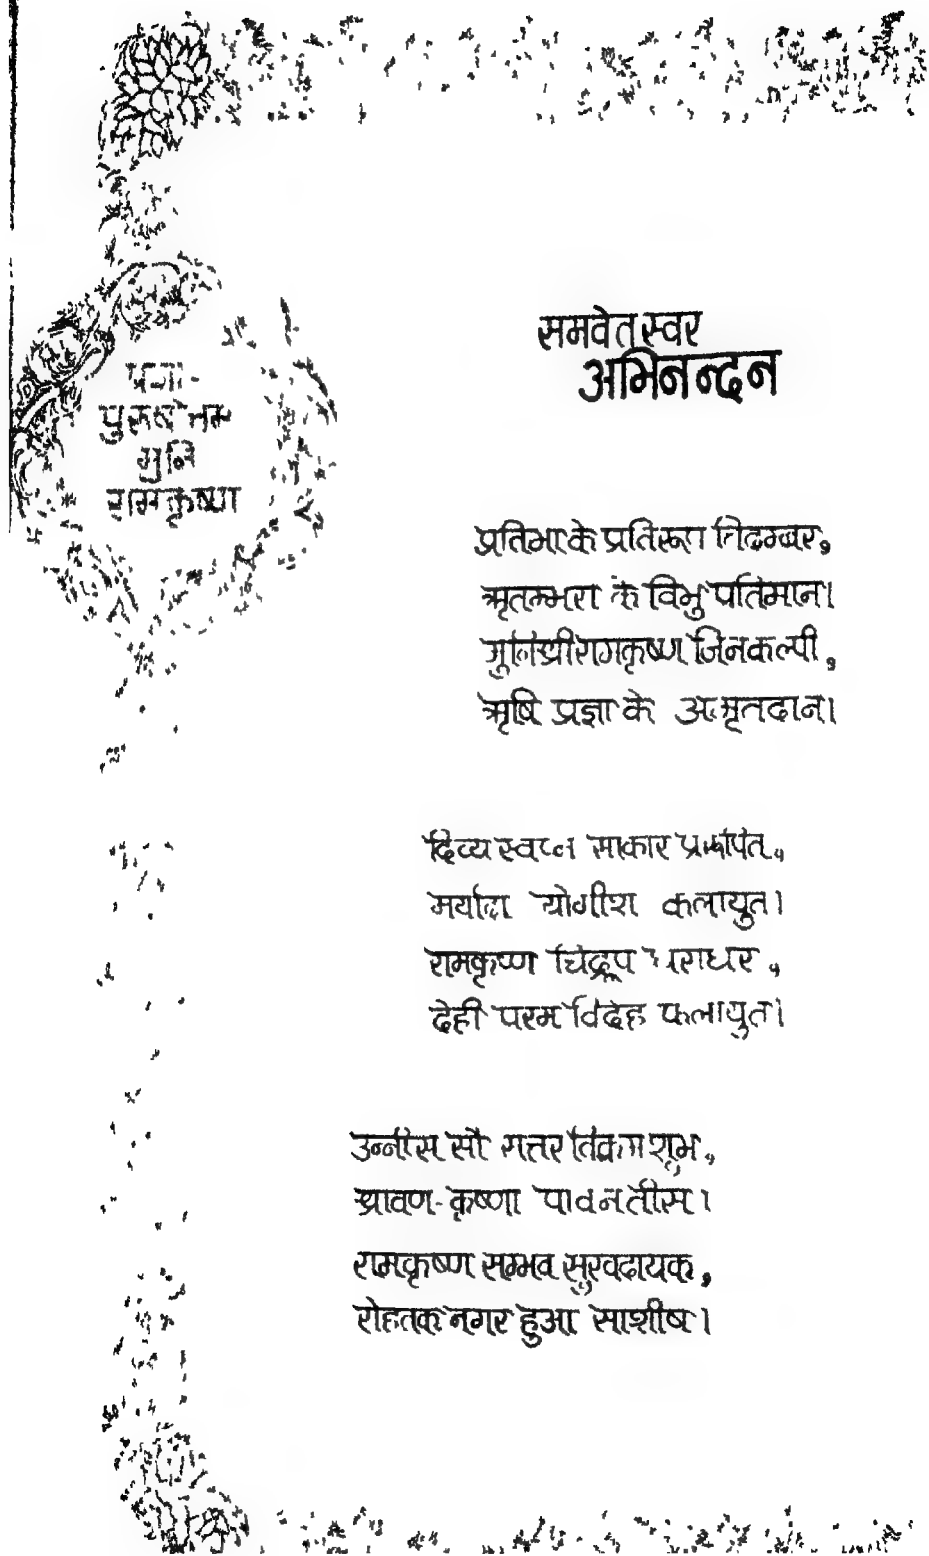 प्रज्ञा-
पुरुषोत्तम
मुनि
रामकृष्ण
समवेत स्वर
अभिनन्दन
प्रतिभा के प्रतिरूप चिदम्बर,
ऋतम्भरा के विभु प्रतिमान।
मुनिश्री रामकृष्ण जिनकल्पी,
ऋषि प्रज्ञा के अमृतदान।
दिव्य स्वप्न साकार प्रकल्पित,
मर्यादा योगीश कलायुत।
रामकृष्ण चिद्रूप धराधर,
देही परम विदेह फलायुत।
उन्नीस सौ सत्तर विक्रम शुभ,
श्रावण-कृष्णा पावन तीस।
रामकृष्ण सम्भव सुखदायक,
रोहतक नगर हुआ साशीष।